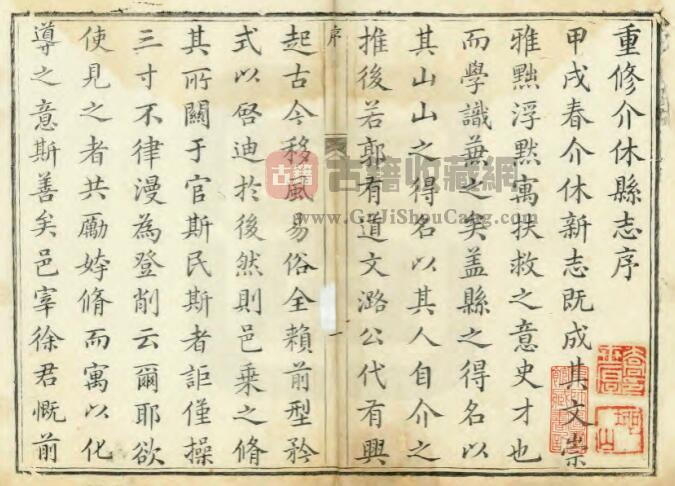 重修介休縣志序
甲戌春介休新志既成其文崇
雅黜浮默寓扶救之意史才也
而學識蒹之矣盖縣之得名以
其山山之得名以其人自介之
推後若郭有道文潞公代有興
序
一
起古今移風易俗全賴前型矜
式以啓迪於後然則邑乗之脩
其所關于官斯民斯者詎僅操
三寸不律漫為登削云爾耶欲
使見之者共勵姱脩而寓以化
導之意斯善矣邑宰徐君慨前
古籍
古籍收藏網
www.GuJiShouCang.com